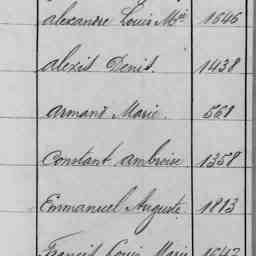 Alexandre Louis Mie 1646
Alexis Denis. 1438
Armand Marie. 568
Constant Ambroise 1358
Emmanuel Auguste. 1813
Francis Louis Marie 1542